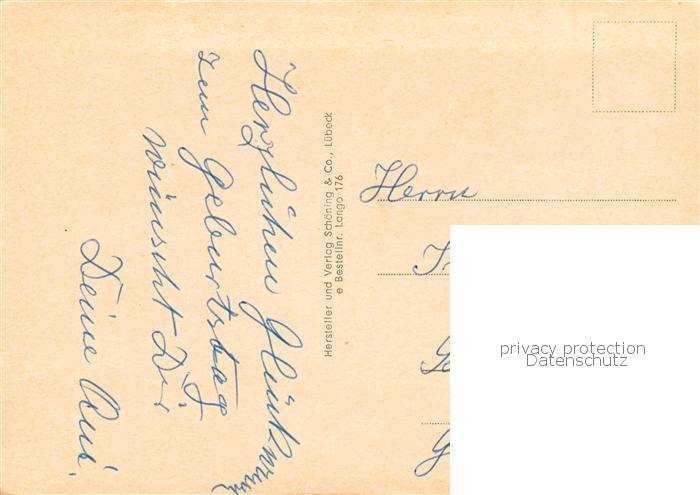 Herzlichen Glückw
zum Geburtstag
wünscht Dir
Deine
Hersteller und Verlag Schöning & Co., Lübeck
e Bestellnr. Lango 176
Herrn
privacy protection
Datenschutz